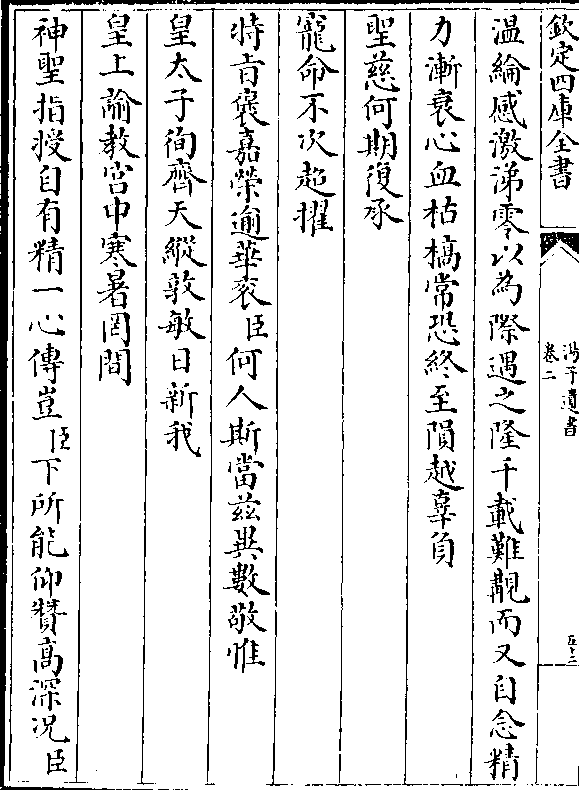 欽定四庫全書
湯子遺書
卷二
五十二
溫綸感激涕零以為際遇之隆千載難覯而又自念精
力漸衰心血枯槁常恐終至隕越辜負
聖慈何期復承
寵命不次超擢
特旨襃嘉榮逾華衮臣何人斯當兹異數敬惟
皇太子徇齊天縱敦敏日新我
皇上諭教宫中寒暑罔間
神聖指授自有精一心傳豈臣下所能仰贊高深况臣